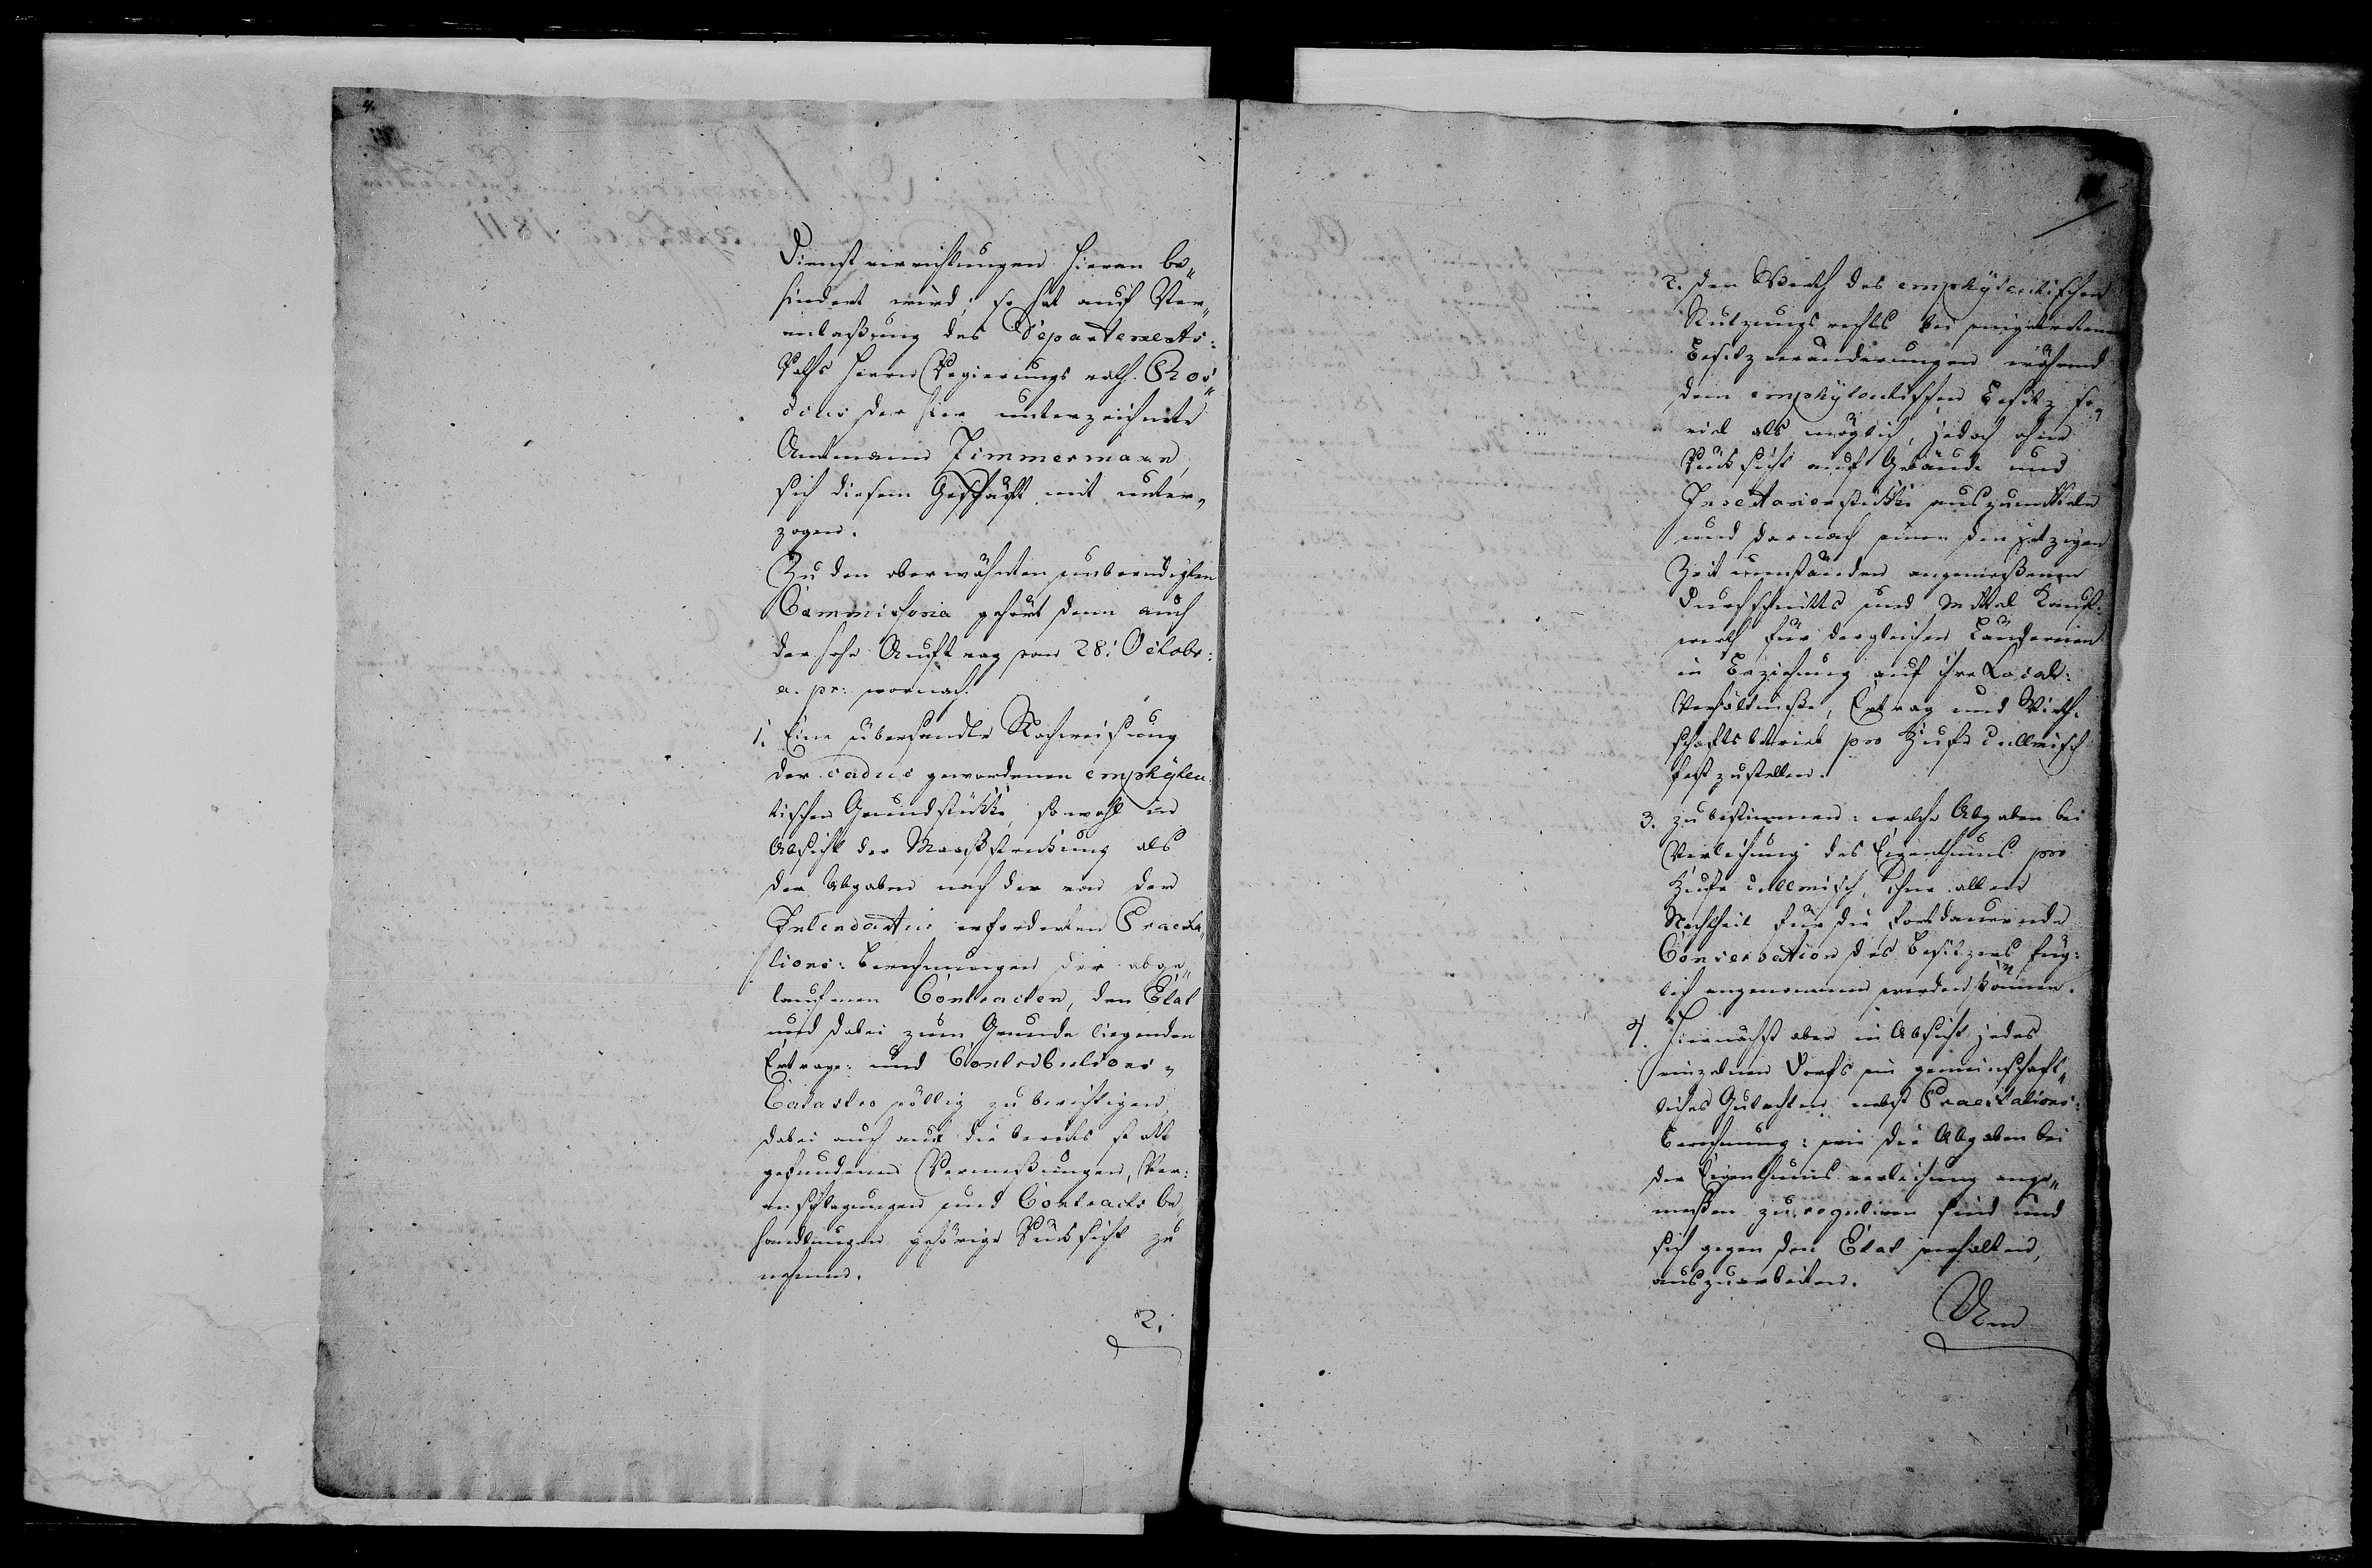 Dienstverrichtungen hieran be„
hindert wird; so hat auf Ver„
anlaßung des Departements-
Raths Herrn Regierungsrath Ros„
cius der hier unterzeichnete
Amtmann Zimmermann,
sich diesem Geschäft mit unter„
zogen.
Zu den oberwähnten unbeendigten
Commissoria gehört denn auch
der hohe Auftrag vom 28! Octobr:
a. pr: wornach
1. Eine übersandte Nachweisung
der caduc gewordenen emphyteu
tischen Grundstükke, sowohl in
Absicht der Maaßstrekung als
der Abgaben nach der von der
Intendantur erforderten Praesta„
tions: Berechnungen der abge„
laufenen Contracten, den Etat
und dabei zum Grunde liegenden
Ertrags: und Contributions„
Catastro völlig zu berichtigen,
dabei auch auf die bereits statt
gefundenen Vermeßungen, Ver:
anschlagungen und Contracts be
handlungen gehörige Rücksicht zu
nehmen.
2.
2. den Werth des emphyteutischen
Nutzungsrechts bei eingetretenen
Besitzveränderungen während
dem emphyteutischen Besitz so„
viel als möglich, jedoch ohne
Rücksicht auf Gebäude und
Inventarienstükke auszumitteln
und darnach einen den jetzigen
Zeitumständen angemeßenen
Durchschnitts und Mittel Kauf:
werth für dergleichen Ländereien
in Beziehung auf ihre Local:
Verhältniße, Ertrag und Wirth„
schaftsbetrieb pro Hufe cullmisch
festzustellen.
3. zu bestimmen: welche Abgaben bei
Verleihung des Eigenthums pro
Hufe cullmisch, ohne allen
Nachtheil für die fortdauernde
Conservation des Besitzers füg:
lich angenommen werden können.
4. Hiernächst aber in Absicht jedes
einzelnen Dorfs ein gemeinschaft„
liches Gutachten nebst Praestations:
Berechnung: wie die Abgaben bei
der Eigenthums verleihung ange„
meßen zu reguliren sind und
sich gegen den Etat verhalten,
auszuarbeiten.
Um